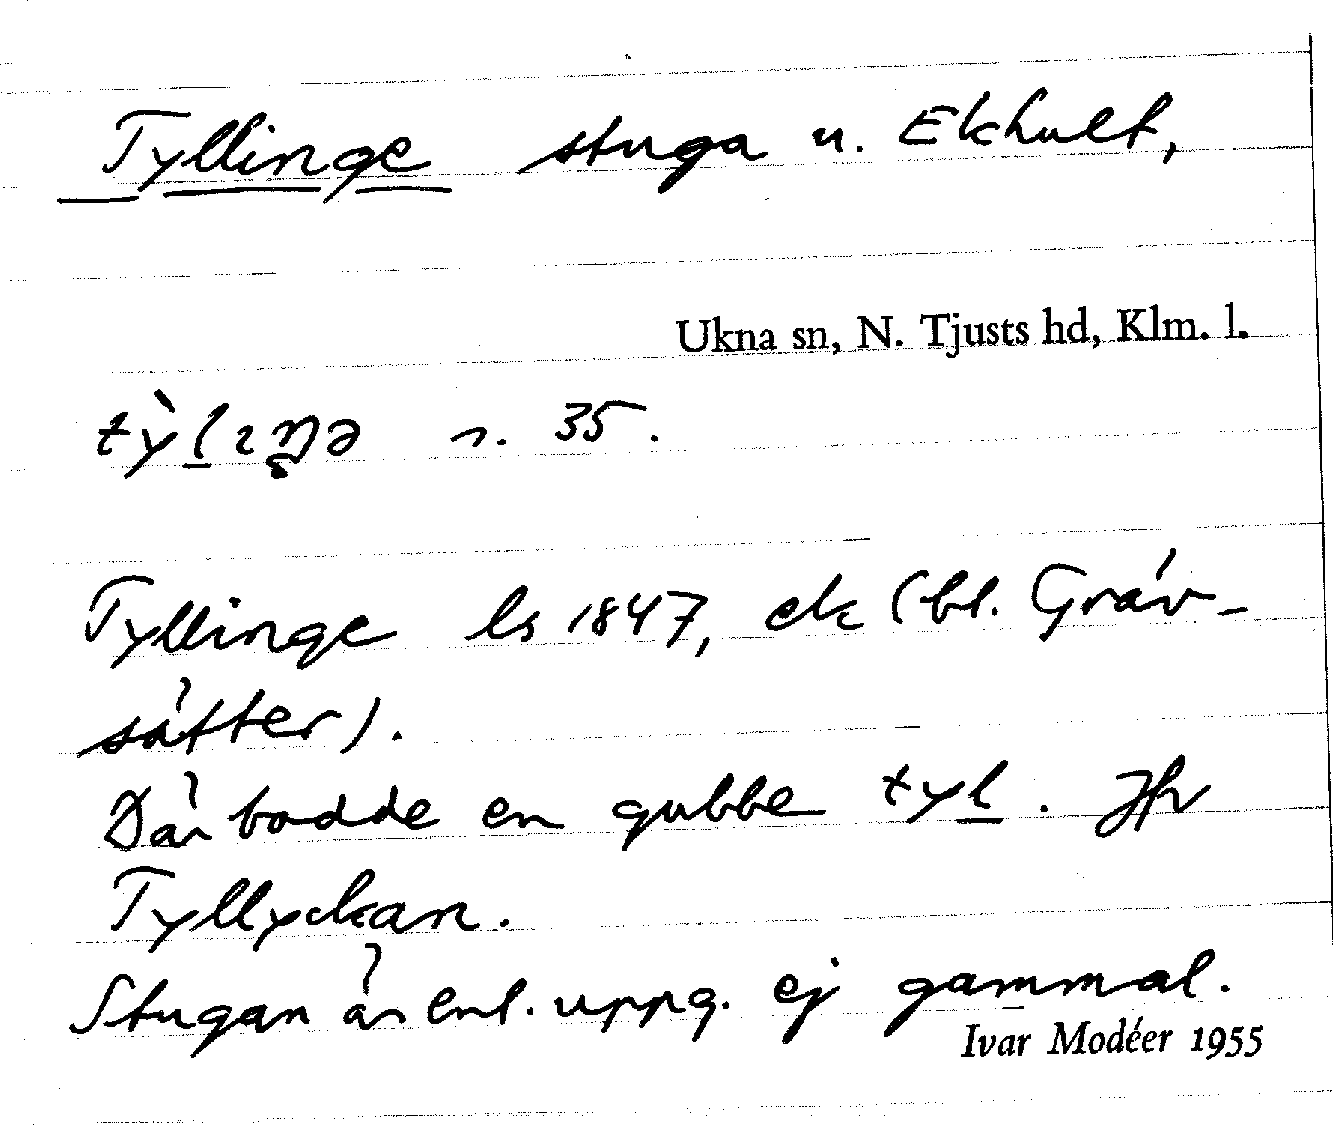 Tyllinge stuga u. Ekhult,
Ukna sn, N. Tjusts hd, Klm. l.
n. 35.
Tyllinge ls 1847, ek (bl. Gräv-
sätter).
Där bodde en gubbe tyl. Jfr
Tyllyckan.
Stugan är enl. uppg. ej gammal.
Ivar Modéer 1955